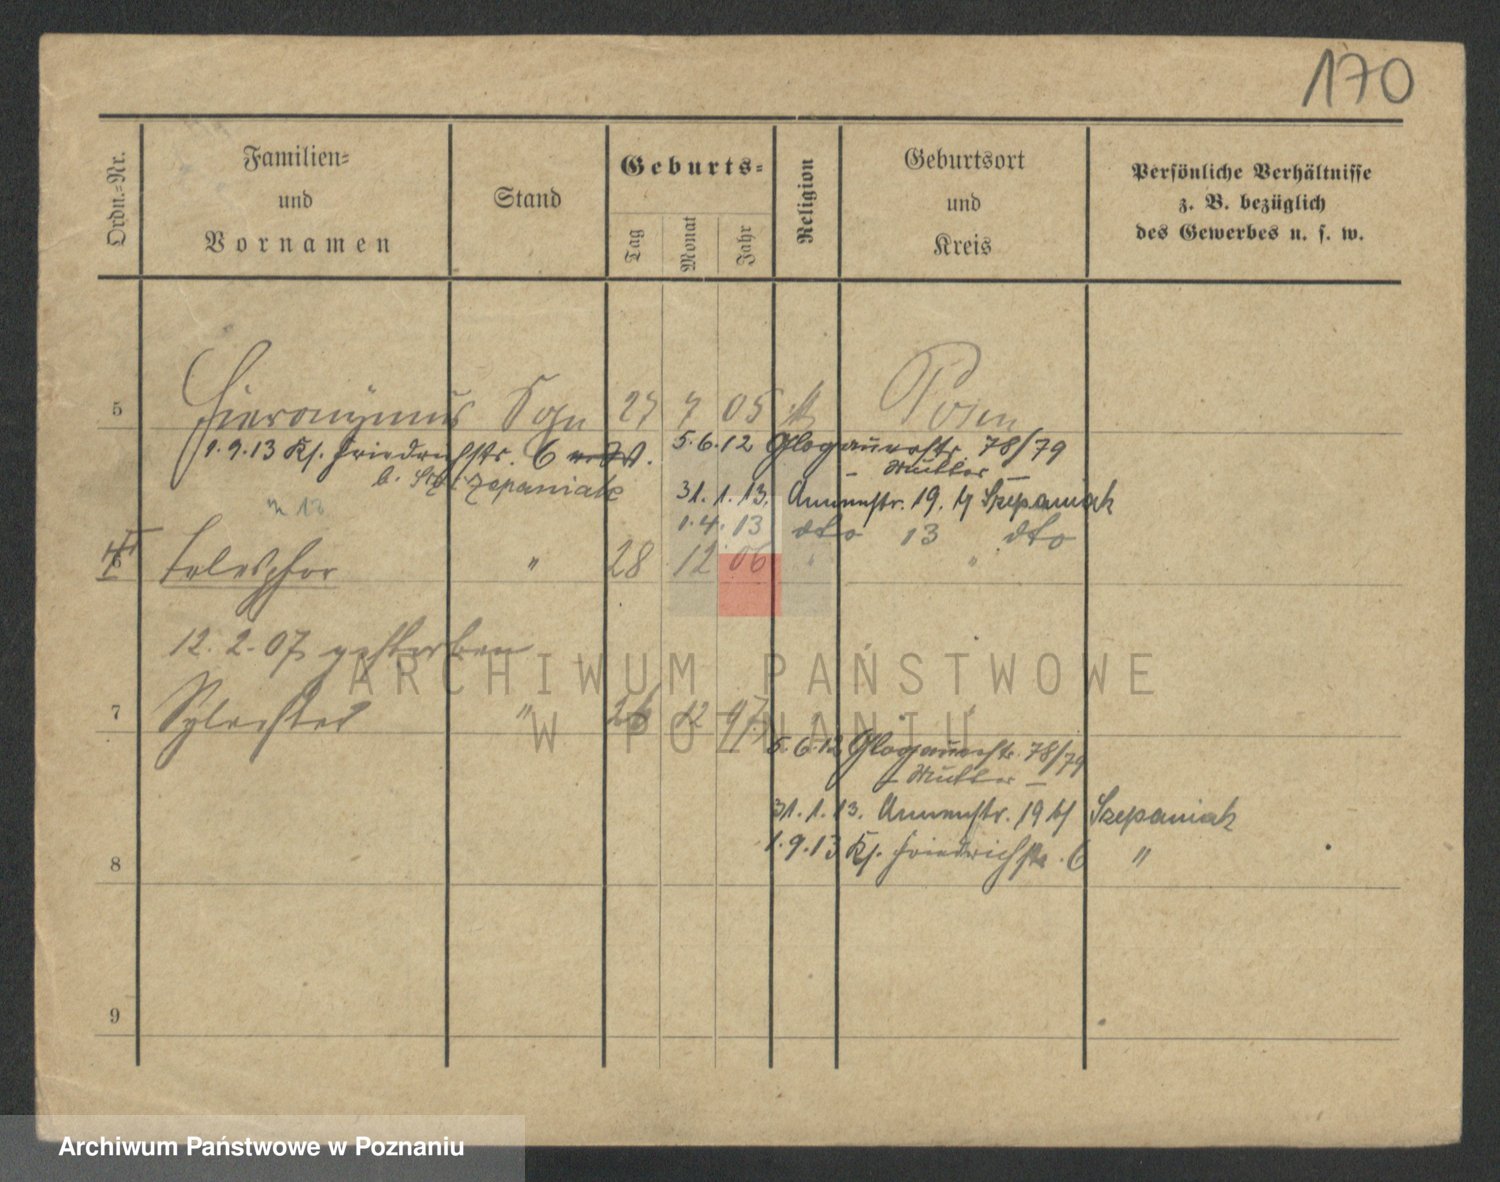 170
Ordn.=Nr.
Familien=
und
Vornamen
Stand
Geburts=
Tag
Monat
Jahr
Religion
Geburtsort
und
Kreis
Persönliche Verhältnisse
z. B. bezüglich
des Gewerbes u. s. w.
5 Hieronÿmus Sohn 27 7 05 Posen
5.6.12 Glogauerstr. 78/79
– Mutter –
1.9.13 Kl. Friedrichstr. 6
b. Szczepaniak
31.1.13. Annenstr. 19. b/ Szepaniak
1.4.13 dto 13 dto
6 Telesphor " 28 12 06 " "
12.2.07 gestorben
7 Sylvester " 26 12 07 " "
5.6.12 Glogauerstr. 78/79
– Mutter –
31.1.13. Annenstr. 19 b/ Szepaniak
1.9.13 Kl. Friedrichstr. 6 "
8
9
ARCHIWUM PAŃSTWOWE
W POZNANIU
Archiwum Państwowe w Poznaniu